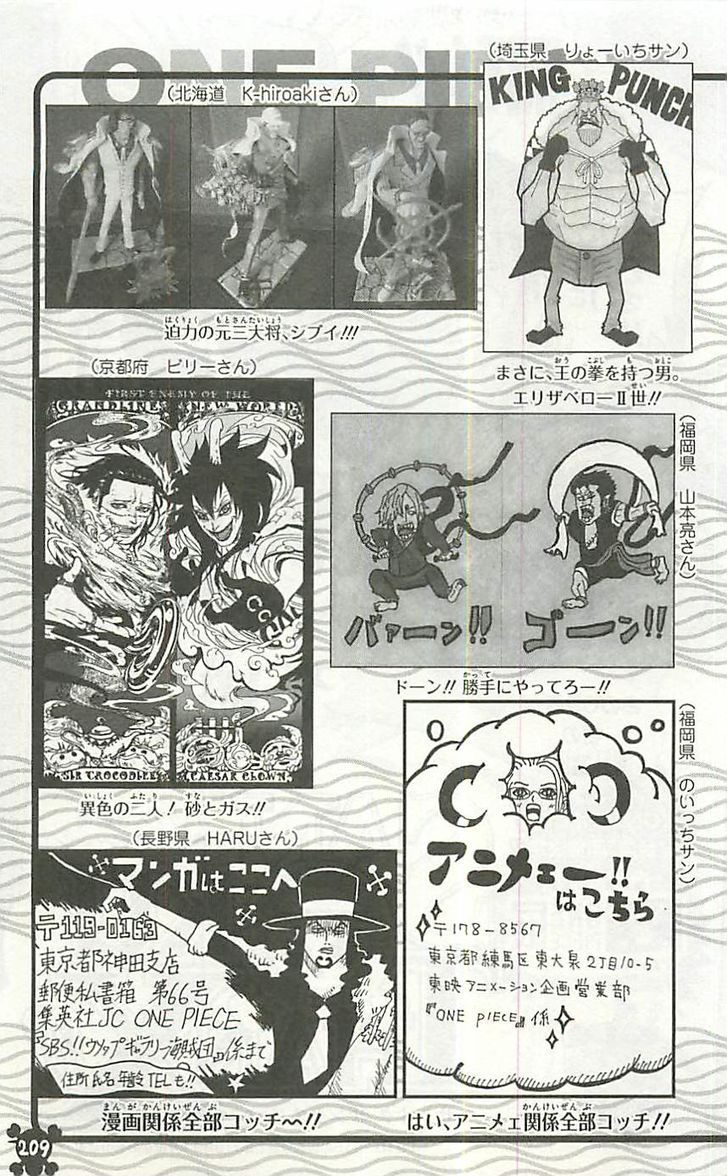 ONE PI
(埼玉県　りょーいちサン)
KING PUNCH
まさに、王の拳を持つ男。
エリザベローⅡ世!!
(北海道　K-hiroakiさん)
迫力の元三大将、シブイ!!!
(京都府　ビリーさん)
FIRST ENEMY OF THE
GRANDLINE NEW WORLD
SIR CROCODILE CAESAR CLOWN
異色の二人! 砂とガス!!
(福岡県　山本亮さん)
バァーン!!
ゴーン!!
ドーン!! 勝手にやってろー!!
(長野県　HARUさん)
マンガはここへ
〒119-0163
東京都神田支店
郵便私書箱 第66号
集英社JC ONE PIECE
『SBS!!ウソップギャラリー海賊団』係まで
住所氏名年齢TELも!!
漫画関係全部コッチ〜!!
(福岡県　のいっちサン)
アニメェー!!
はこちら
〒178-8567
東京都練馬区東大泉2丁目10-5
東映アニメーション企画営業部
『ONE PIECE』係
はい、アニメェ関係全部コッチ!!
209